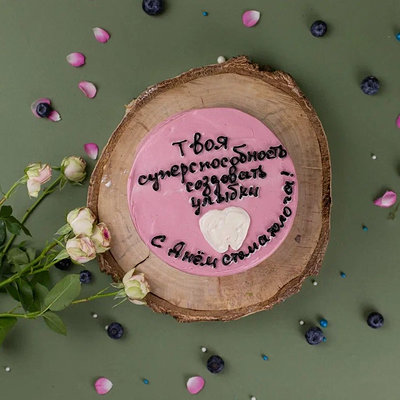 Твоя
суперспособность
создавать
улыбки
С Днём стоматолога!